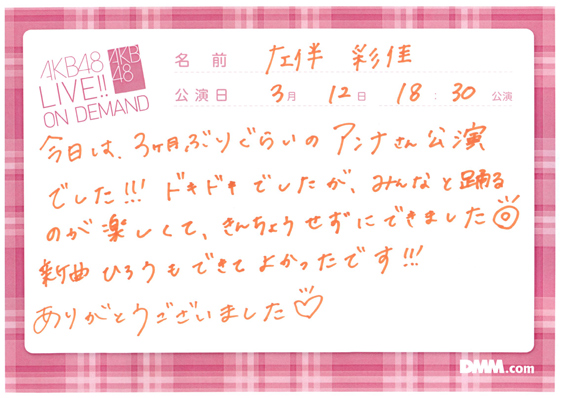 AKB48
LIVE!!
ON DEMAND
AKB
48
名前 左伴 彩佳
公演日 3月 12日 18:30 公演
今日は、3ヶ月ぶりぐらいの アンナさん公演
でした!!! ドキドキでしたが、みんなと踊る
のが楽しくて、きんちょうせずにできました
新曲 ひろうもできて よかったです!!!
ありがとうございました♡
DMM.com